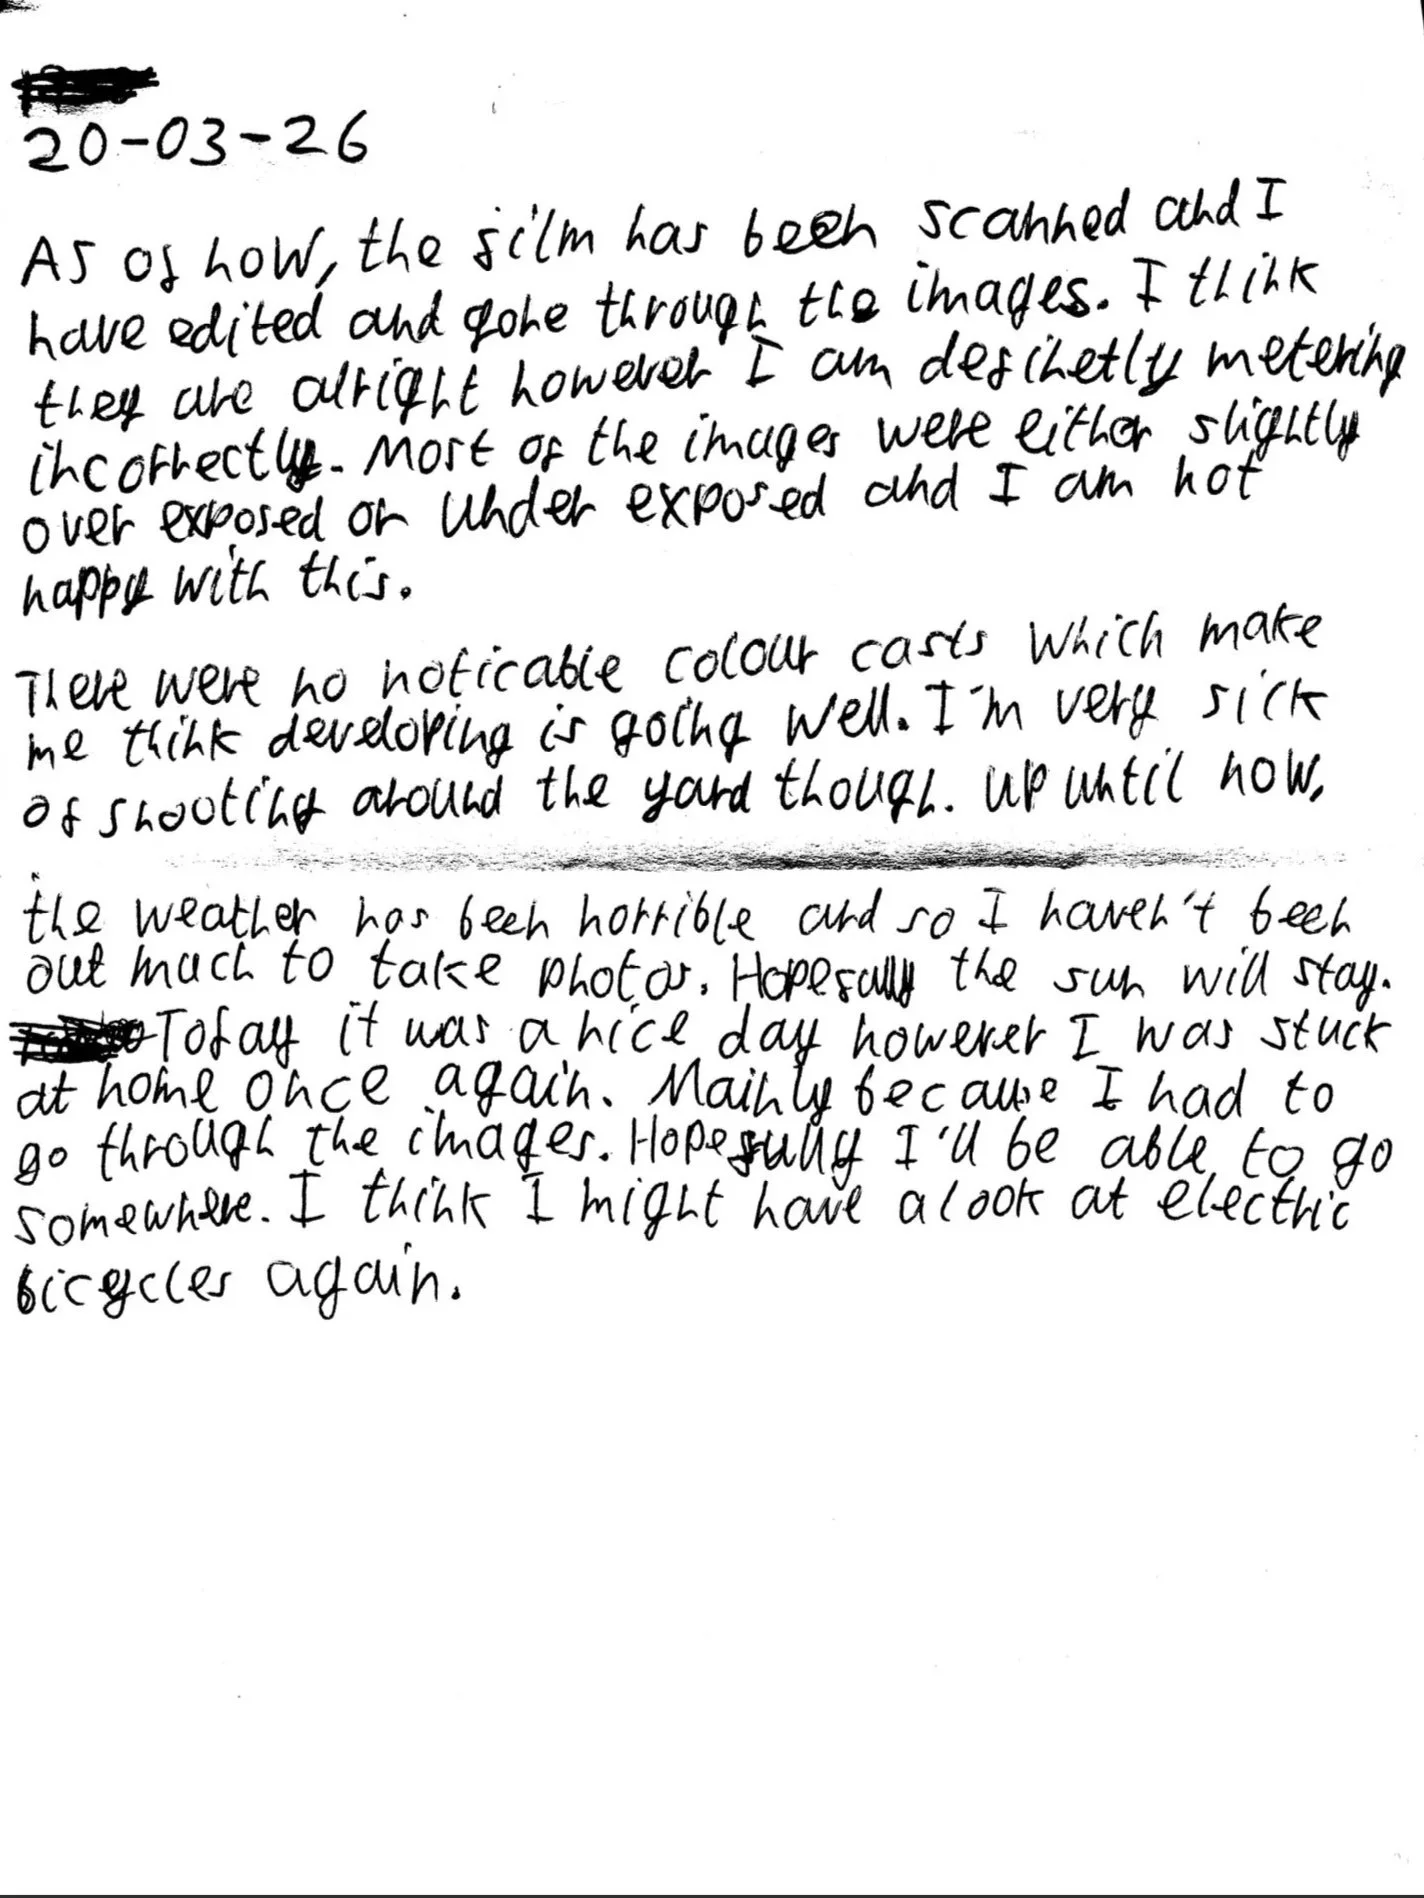 20-03-26
As of now, the film has been scanned and I
have edited and gone through the images. I think
they are alright however I am definetly metering
incorrectly. Most of the images were either slightly
over exposed or under exposed and I am not
happy with this.
There were no noticable colour casts which make
me think developing is going well. I'm very sick
of shooting around the yard though. Up until now,
the weather has been horrible and so I haven't been
out much to take photos. Hopefully the sun will stay.
Today it was a nice day however I was stuck
at home once again. Mainly because I had to
go through the images. Hopefully I'll be able to go
somewhere. I think I might have a look at electric
bicycles again.